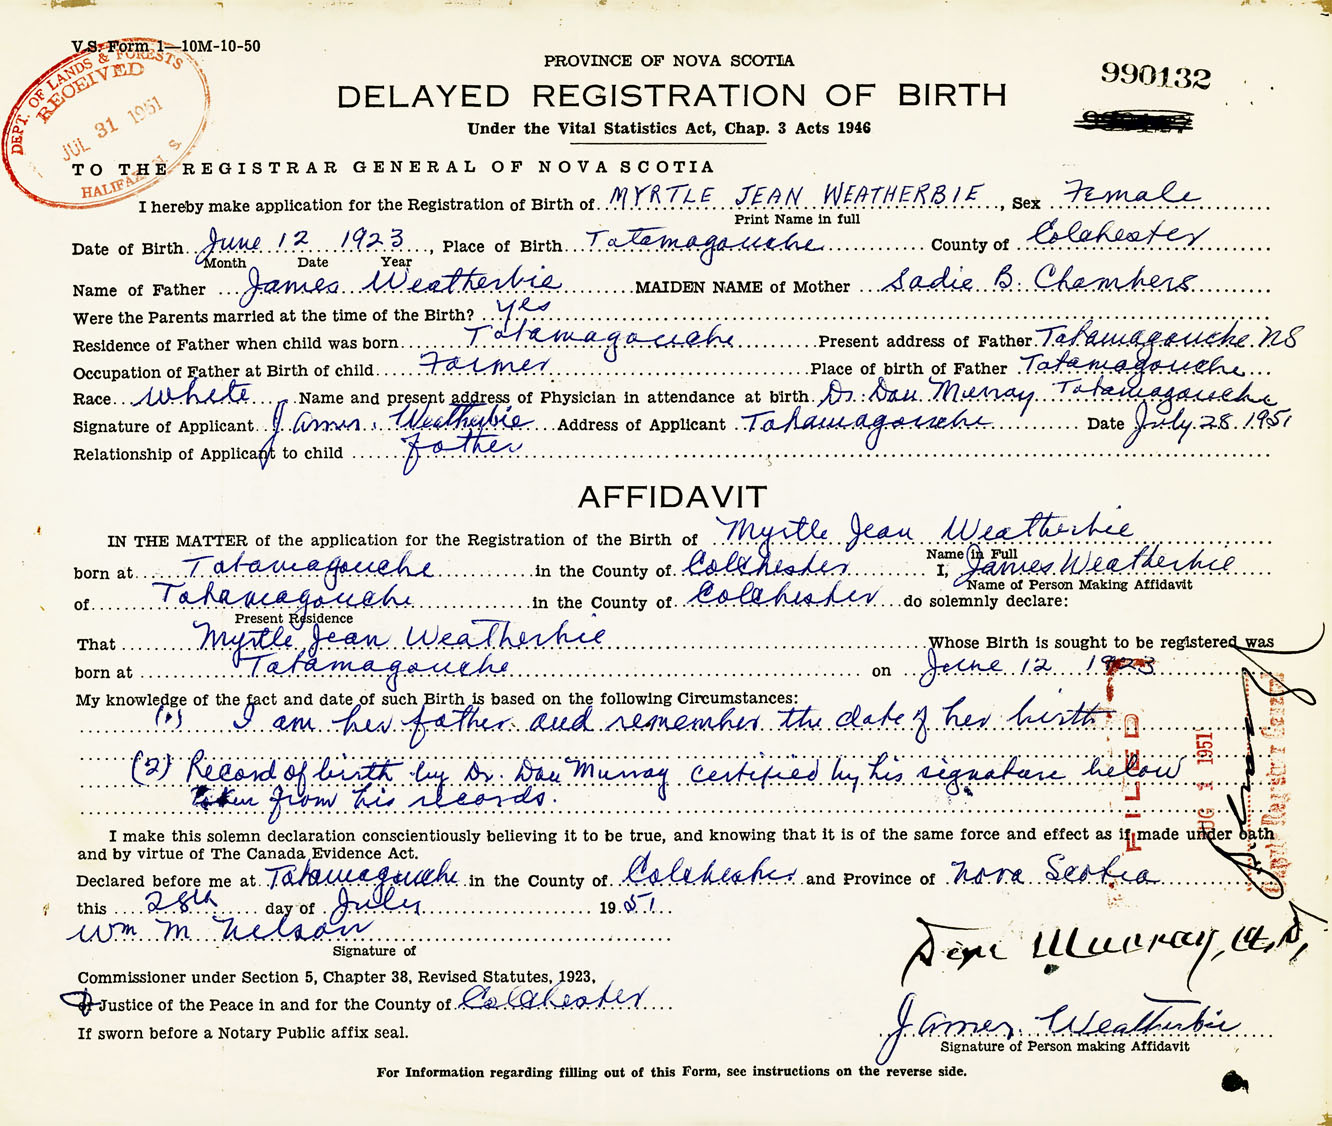 V.S. Form 1—10M-10-50
DEPT. OF LANDS & FORESTS
RECEIVED
JUL 31 1951
HALIFAX N. S.
PROVINCE OF NOVA SCOTIA
990132
DELAYED REGISTRATION OF BIRTH
Under the Vital Statistics Act, Chap. 3 Acts 1946
TO THE REGISTRAR GENERAL OF NOVA SCOTIA
I hereby make application for the Registration of Birth of MYRTLE JEAN WEATHERBIE, Sex Female
Print Name in full
Date of Birth June 12 1923, Place of Birth Tatamagouche County of Colchester
Month Date Year
Name of Father James Weatherbie MAIDEN NAME of Mother Sadie B. Chambers
Were the Parents married at the time of the Birth? Yes
Residence of Father when child was born Tatamagouche Present address of Father Tatamagouche NS
Occupation of Father at Birth of child Farmer Place of birth of Father Tatamagouche
Race White Name and present address of Physician in attendance at birth Dr. Dan Murray Tatamagouche
Signature of Applicant James Weatherbie Address of Applicant Tatamagouche Date July 28 1951
Relationship of Applicant to child father
AFFIDAVIT
IN THE MATTER of the application for the Registration of the Birth of Myrtle Jean Weatherbie
Name in Full
born at Tatamagouche in the County of Colchester I, James Weatherbie
Name of Person Making Affidavit
of Tatamagouche in the County of Colchester do solemnly declare:
Present Residence
That Myrtle Jean Weatherbie Whose Birth is sought to be registered was
born at Tatamagouche on June 12 1923
My knowledge of the fact and date of such Birth is based on the following Circumstances:
(1) I am her father and remember the date of her birth
(2) Record of birth by Dr. Dan Murray certified by his signature below
taken from his records.
FILED
AUG 1 1951
Deputy Registrar General
I make this solemn declaration conscientiously believing it to be true, and knowing that it is of the same force and effect as if made under oath
and by virtue of The Canada Evidence Act.
Declared before me at Tatamagouche in the County of Colchester and Province of Nova Scotia
this 28th day of July 1951
Wm M Nelson
Signature of
Dan Murray, M.D.
Commissioner under Section 5, Chapter 38, Revised Statutes, 1923,
or Justice of the Peace in and for the County of Colchester
If sworn before a Notary Public affix seal.
James Weatherbie
Signature of Person making Affidavit
For Information regarding filling out of this Form, see instructions on the reverse side.